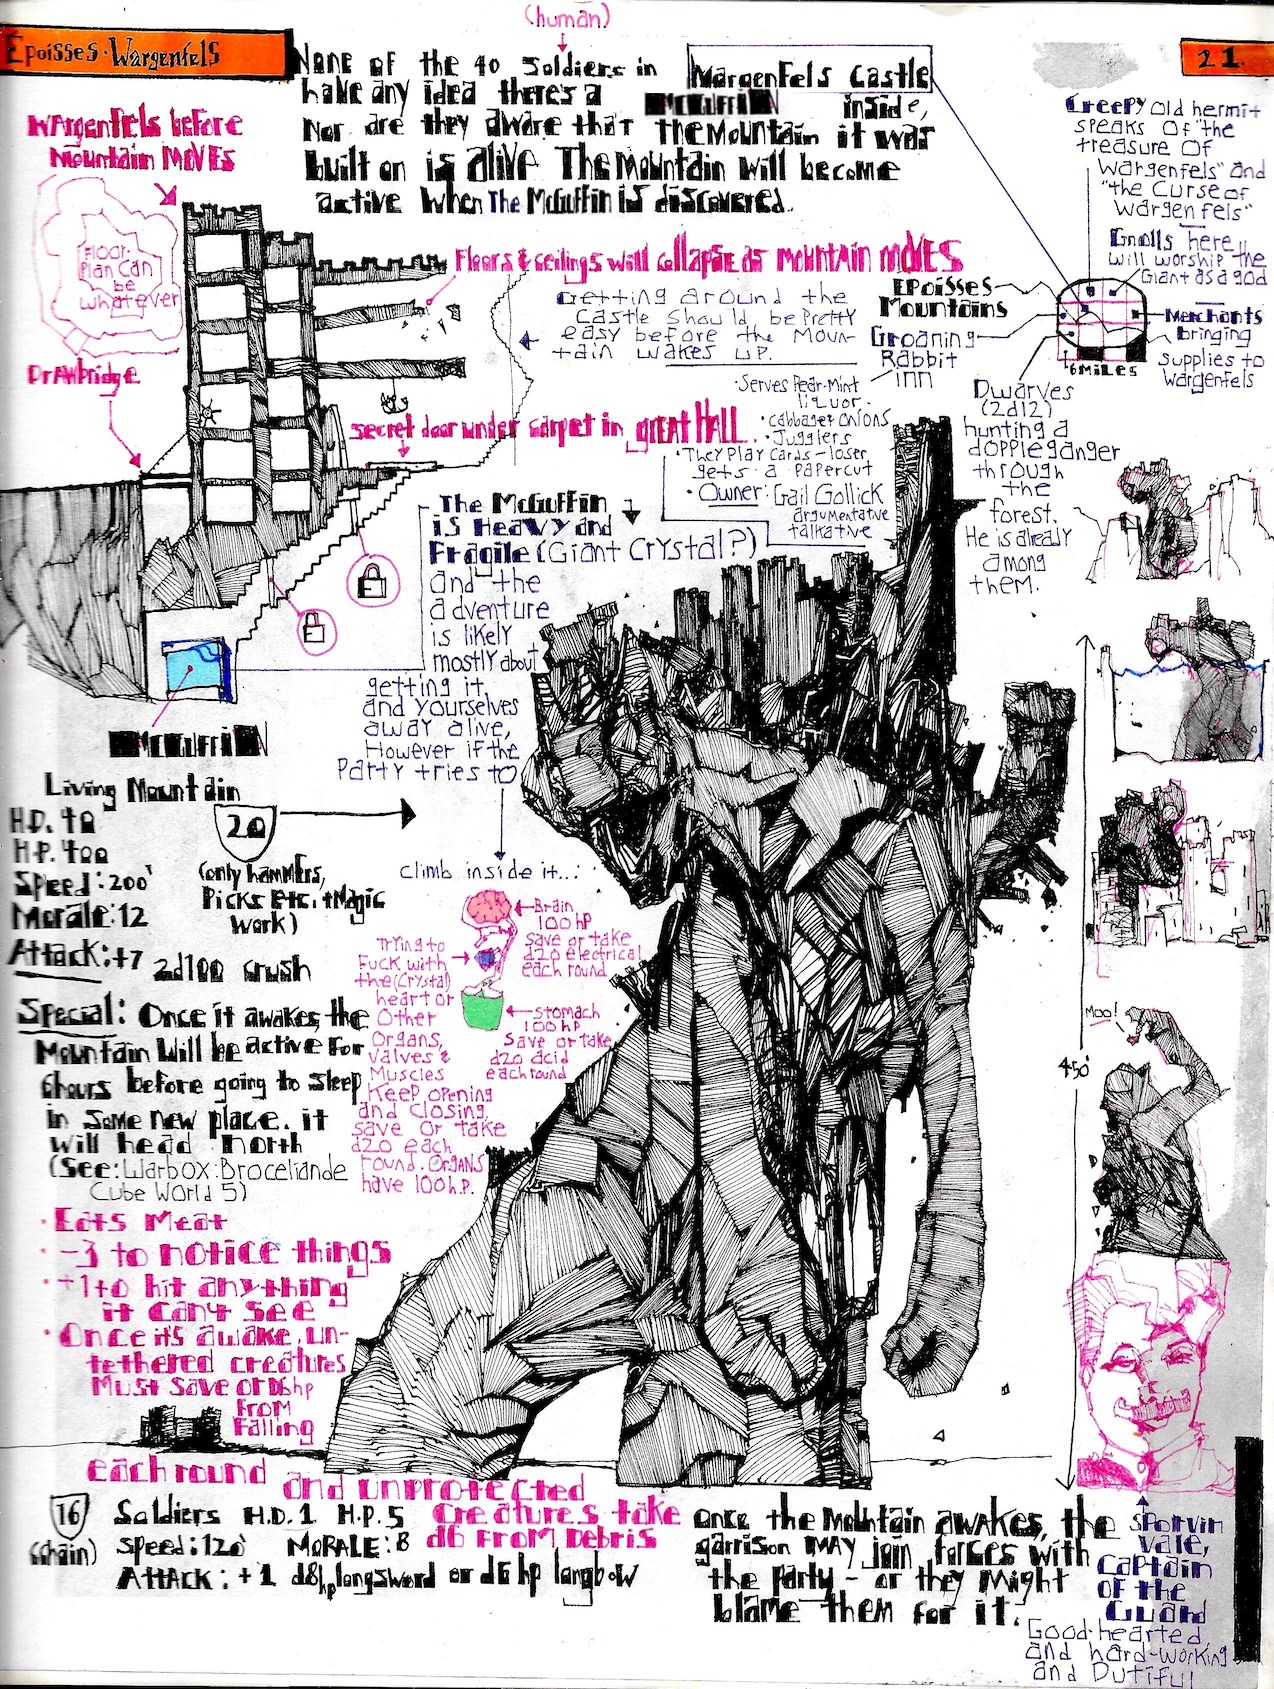 (human)
Epoisses · Wargenfels
21.
None of the 40 Soldiers in Wargenfels Castle
have any idea there's a McGuffin inside,
Nor are they aware that the Mountain it was
built on is alive The Mountain will become
active when The McGuffin is discovered.
Wargenfels before
Mountain Moves
Floor-
Plan Can
be
whatever
Drawbridge
Floors & ceilings will collapse as Mountain moves
Getting around the
Castle should be Pretty
easy before the Moun-
tain wakes up.
secret door under carpet in great Hall
Creepy old hermit
speaks of "the
treasure of
Wargenfels" and
"the Curse of
Wargenfels"
Gnolls here
will worship the
Giant as a god
Epoisses
Mountains
Groaning
Rabbit
inn
Merchants
bringing
supplies to
Wargenfels
6 Miles
·Serves Pear-Mint
liquor.
·cabbages onions
·Jugglers
·They Play Cards—loser
gets a papercut
·Owner: Gail Gollick
argumentative
talkative
Dwarves
(2d12)
hunting a
doppleganger
through
the
forest.
He is already
among
them.
The McGuffin
is Heavy and
Fragile (Giant Crystal?)
and the
adventure
is likely
mostly about
getting it,
and yourselves
away alive,
However if the
Party tries to
climb inside it...:
McGuffin
Living Mountain
H.D. 40
H.P. 400
Speed: 200'
Morale: 12
Attack: +7 2d100 crush
20
(only hammers,
Picks Etc. + Magic
work)
Special: Once it awakes, the
Mountain will be active for
6 hours before going to sleep
in some new place. it
will head north
(See: Warbox: Broceliande
Cube World 5)
· Eats Meat
· -3 to notice things
· +1 to hit anything
it can't see
· Once it's awake, un-
tethered creatures
Must save or D6 hp
from
Falling
each round and unprotected
creatures take
d6 from Debris
Brain
100 hp
save or take
d20 electrical
each round
Trying to
Fuck with
the (crystal)
heart or
Other
Organs,
valves &
Muscles
Keep opening
and closing,
save or take
d20 each
round. Organs
have 100 h.p.
stomach
100 hp
save or take
d20 acid
each round
Moo!
450'
16
(chain)
Soldiers H.D. 1 H.P. 5
Speed: 120' Morale: 8
Attack: +1 d8 hp longsword or d6 hp longbow
once the Mountain awakes, the
garrison may join forces with
the party — or they might
blame them for it.
Sporvin
Vale,
Captain
of the
Guard
Good-hearted,
and hard-working
and Dutiful